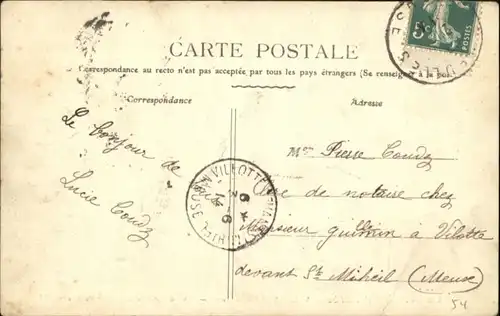 CARTE POSTALE
Correspondance au recto n'est pas acceptée par tous les pays étrangers (Se renseigner à la pos
Correspondance
Adresse
Le bonjour de
Lucie Coudz
Mr Pierre Coudz
de notaire chez
Monsieur guillmin à Vilotte
devant St Mihiel (Meuse)
54
VILLOTTE
5c
POSTES